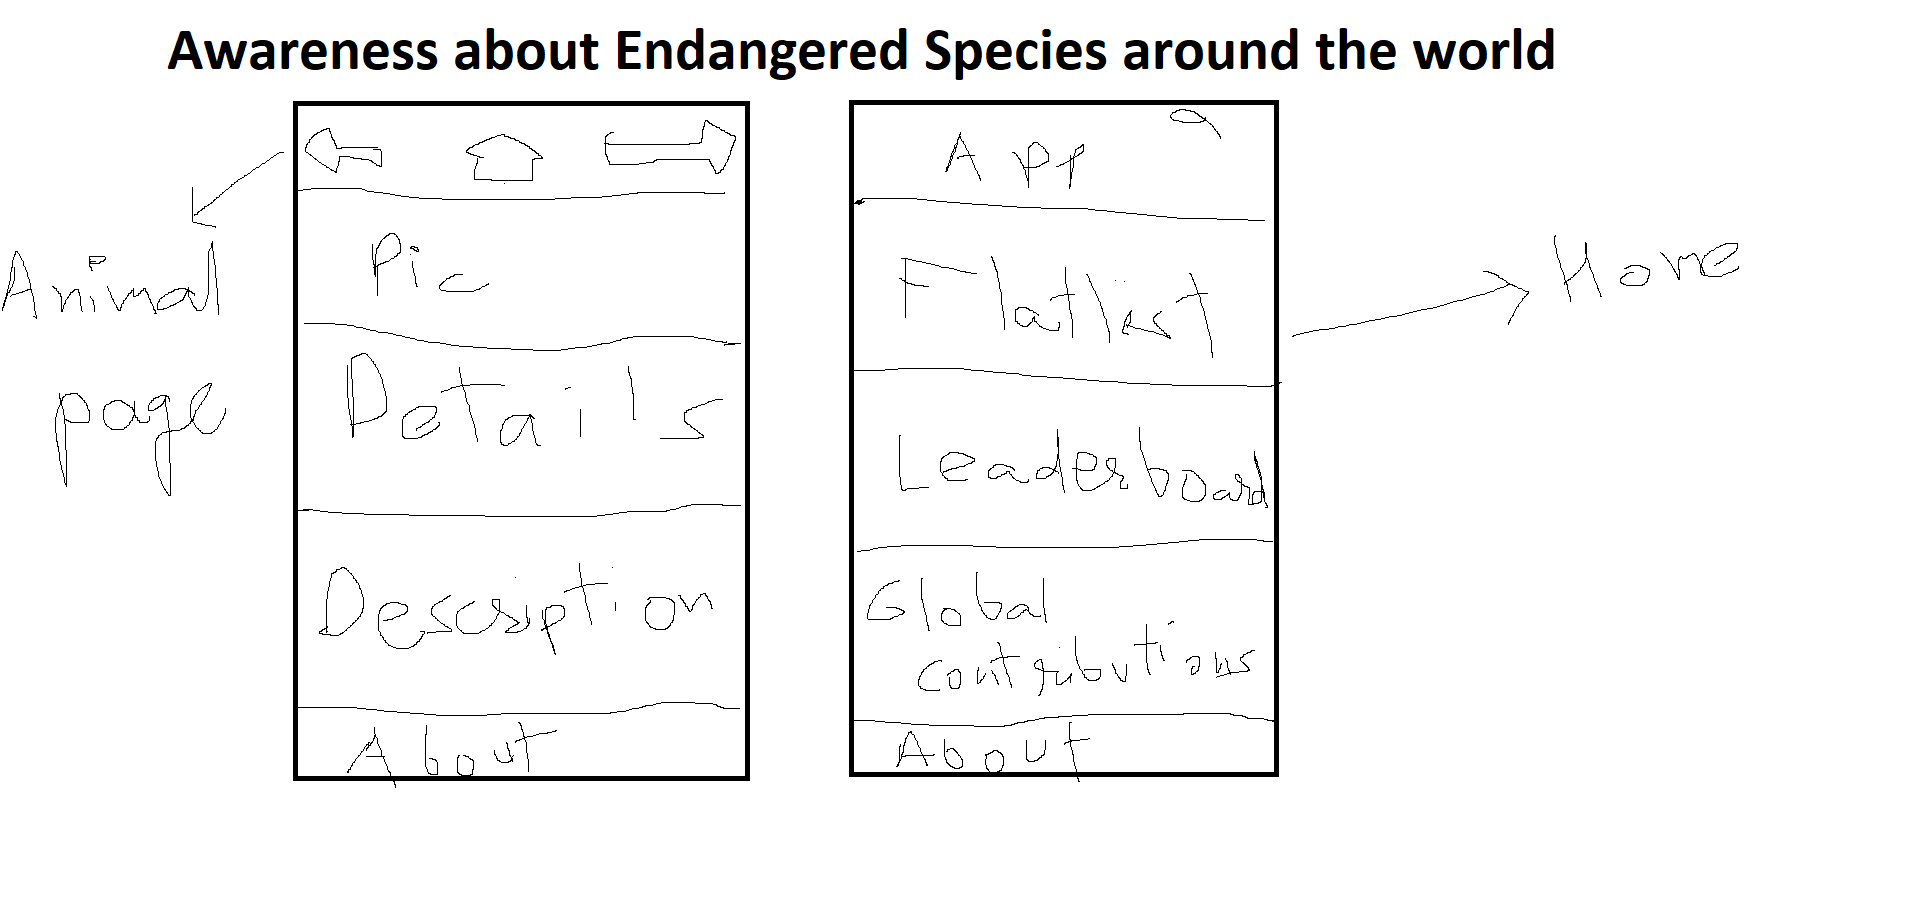 Awareness about Endangered Species around the world
Animal
page
Pic
Details
Description
About
App
Flatlist
Leaderboard
Global
contributions
About
Home